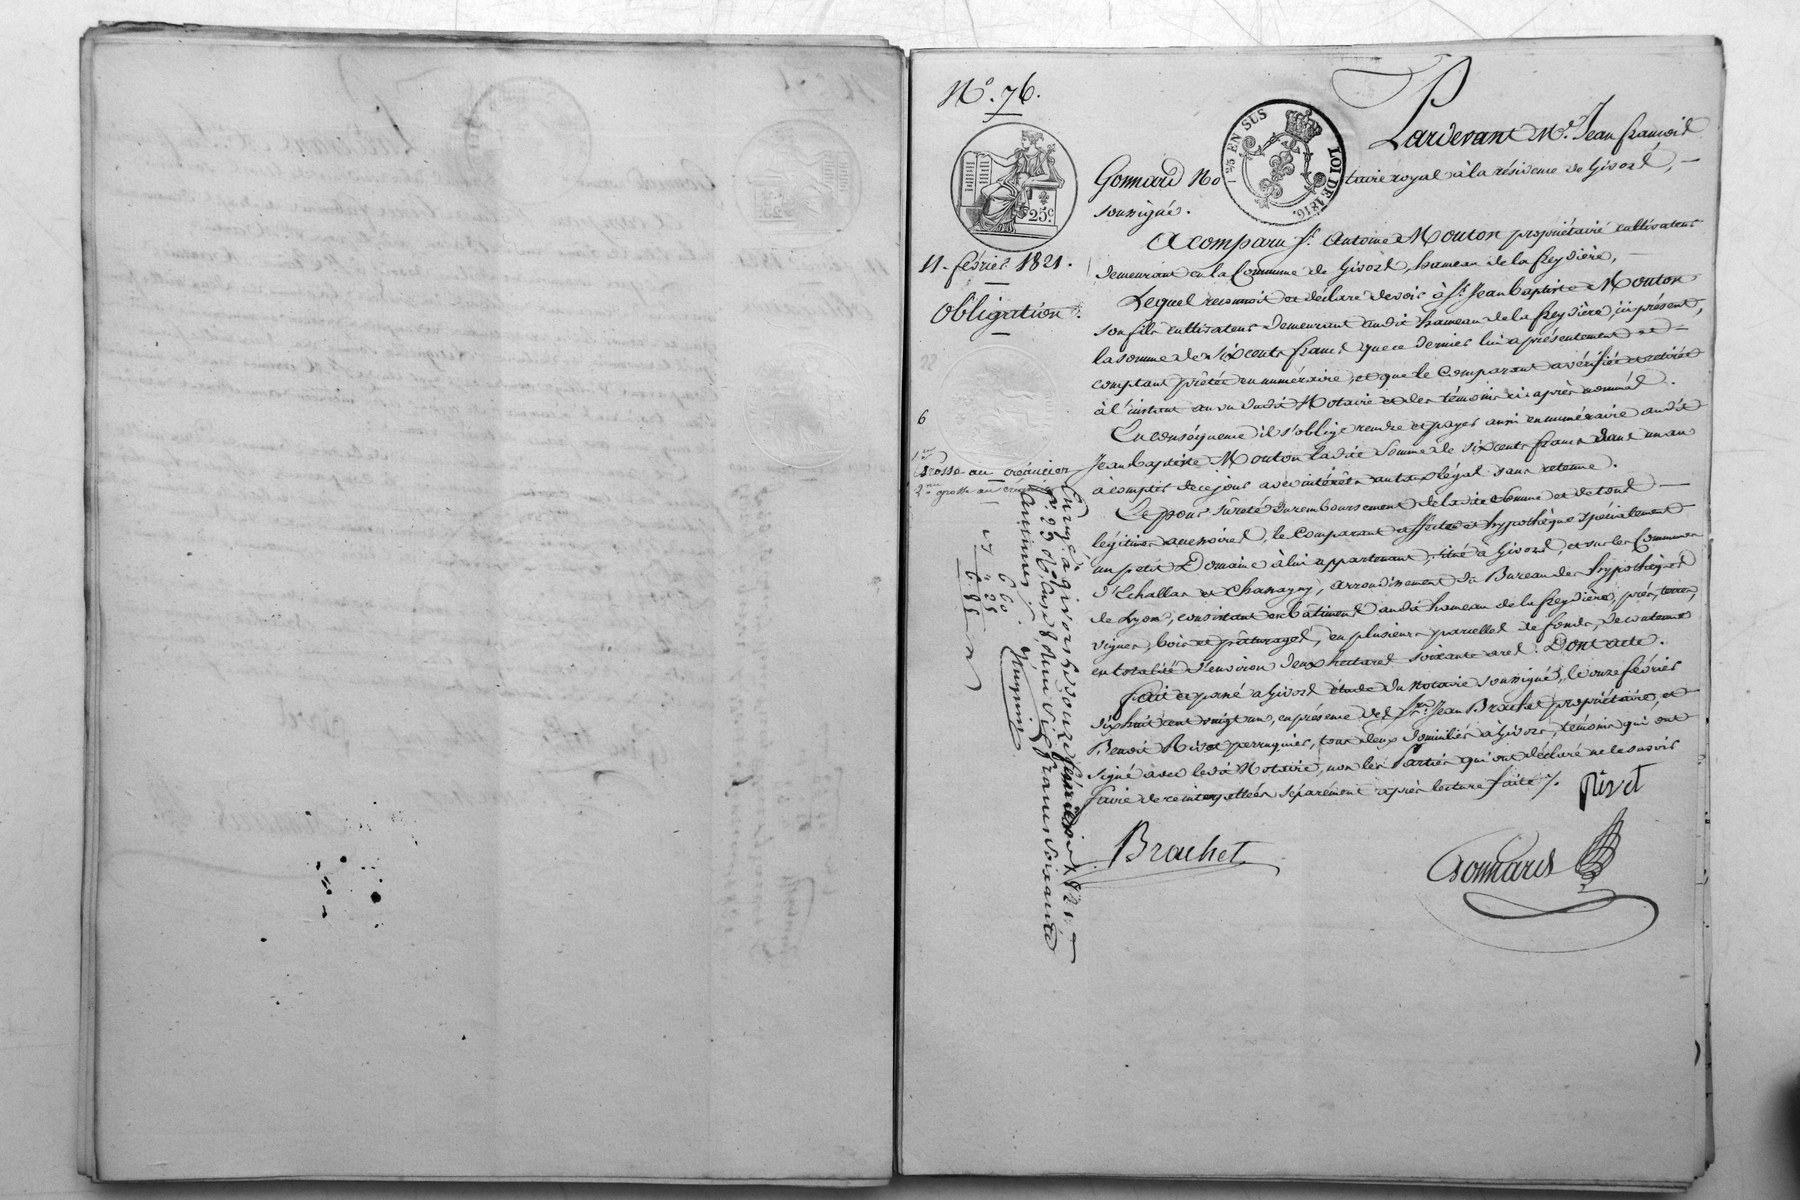 N° 76.
25 EN SUS
LOI DE 1816.
25.c
11. février 1821.
Obligation.
6
Grosse au créancier
2.me grosse au
Pardevant M.e Jean françois
Gonnard Notaire royal à la résidence de Givors,
soussigné.
A comparu s.r Antoine Mouton propriétaire cultivateur
demeurant en la Commune de Givors, hameau de la freydière,
Lequel reconnoit et déclare devoir à S.r Jean baptiste Mouton
son fils cultivateur demeurant audit hameau de la freydière, ici présent,
la somme de six cents francs que ce dernier lui a présentement
comptant prêtée en numéraire, et que le Comparant a vérifiée et retirée
à l'instant au vu dudit Notaire et des témoins ci après nommés.
En conséquence il s'oblige rendre et payer aussi en numéraire audit
Jean baptiste Mouton ladite somme de six cents francs dans un an
à compter de ce jour avec intérêts au taux légal sans retenue.
Et pour sûreté du remboursement de ladite somme et de tous
légitimes accessoires, le Comparant affecte et hypothèque spécialement
un petit Domaine à lui appartenant, situé à Givors, et sur les Communes
d'Echallas et Chassagny, arrondissement du Bureau des hypothèques
de Lyon, consistant en bâtiments audit hameau de la freydière, prés, terres,
vignes, bois et pâturages, en plusieurs parcelles de fonds, de contenue
en totalité d'environ deux hectares soixante ares. Dont acte.
fait et passé à Givors étude du Notaire soussigné, le onze février
dix huit cent vingt un, en présence des S.rs Jean Brachet propriétaire, et
Benoit Rivet perruquier, tous deux domiciliés à Givors, témoins qui ont
signé avec ledit Notaire, non les Parties qui ont déclaré ne le savoir
faire de ce interpellées séparément après lecture faite.
Rivet
Brachet
Gonnard
Enregé à givors le douze février 1821.
f.° 23 Reçu six francs soixante
centimes.
6 60
" 25
6 85